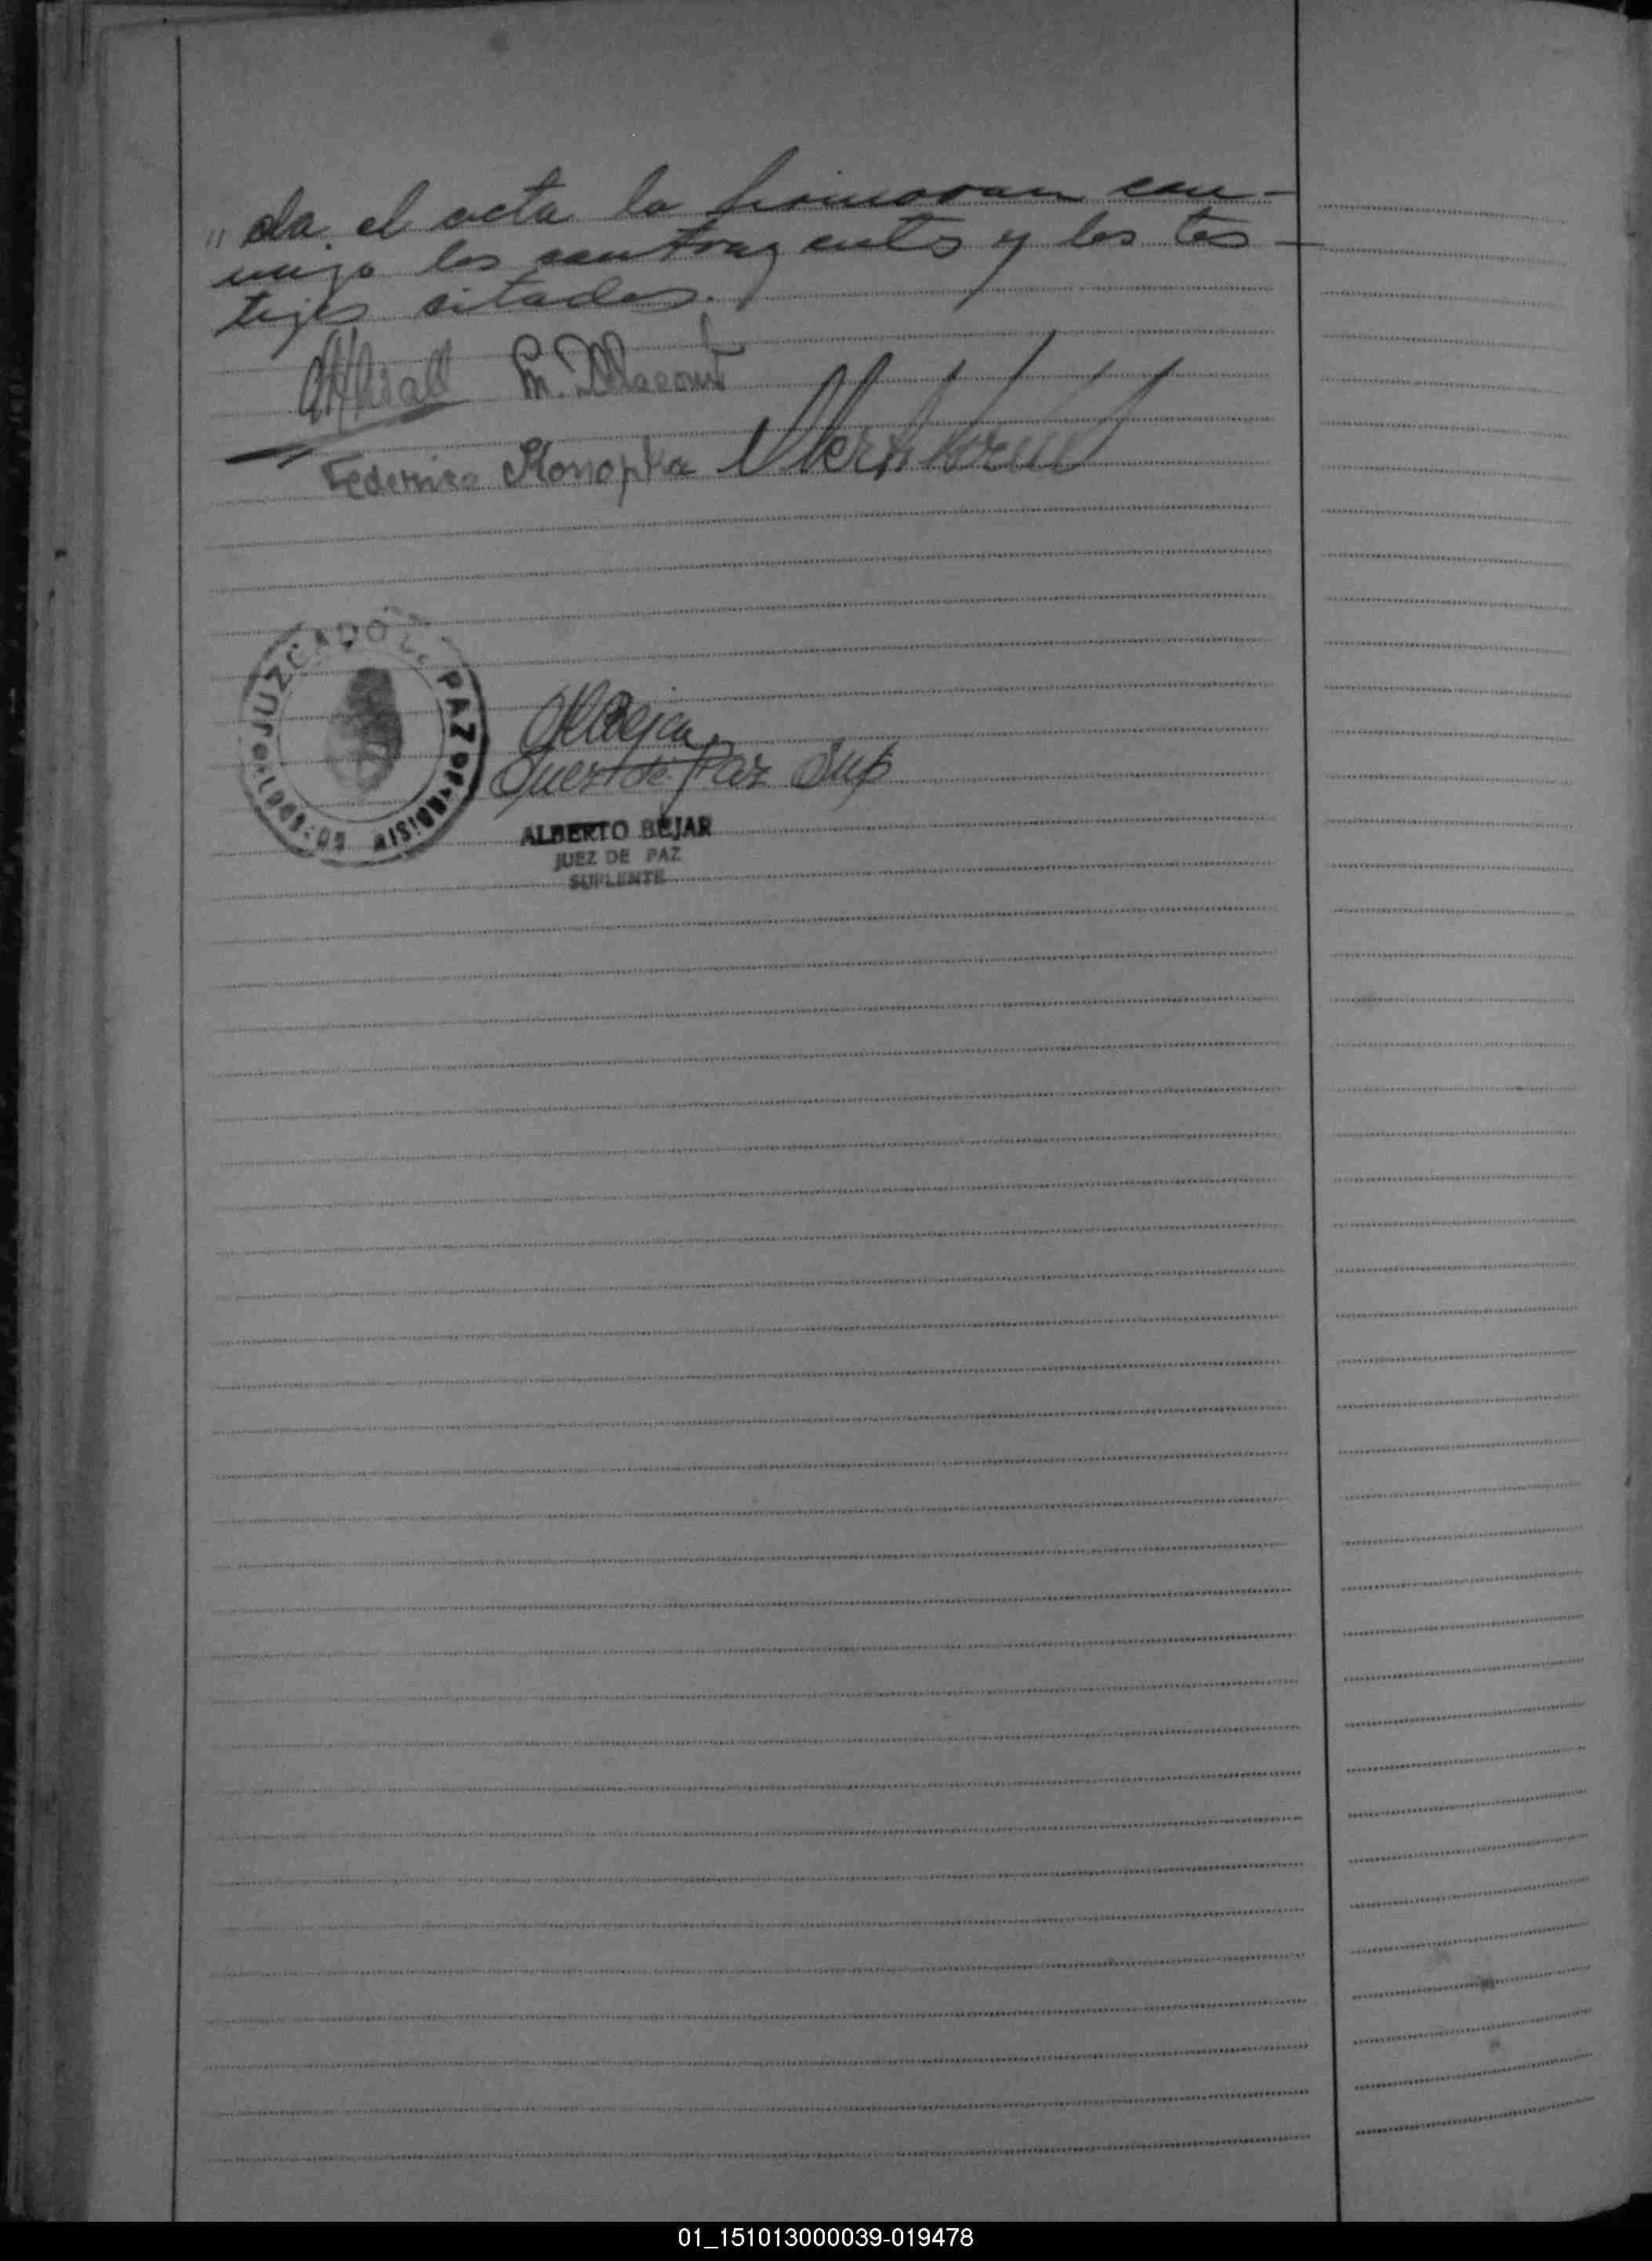 " da el acta la firmaran con-
migo los contrayentes y los tes-
tigos sitados.
Federico Konopka
JUZGADO DE PAZ
Juez de Paz Sup
ALBERTO BEJAR
JUEZ DE PAZ
SUPLENTE
01_151013000039-019478